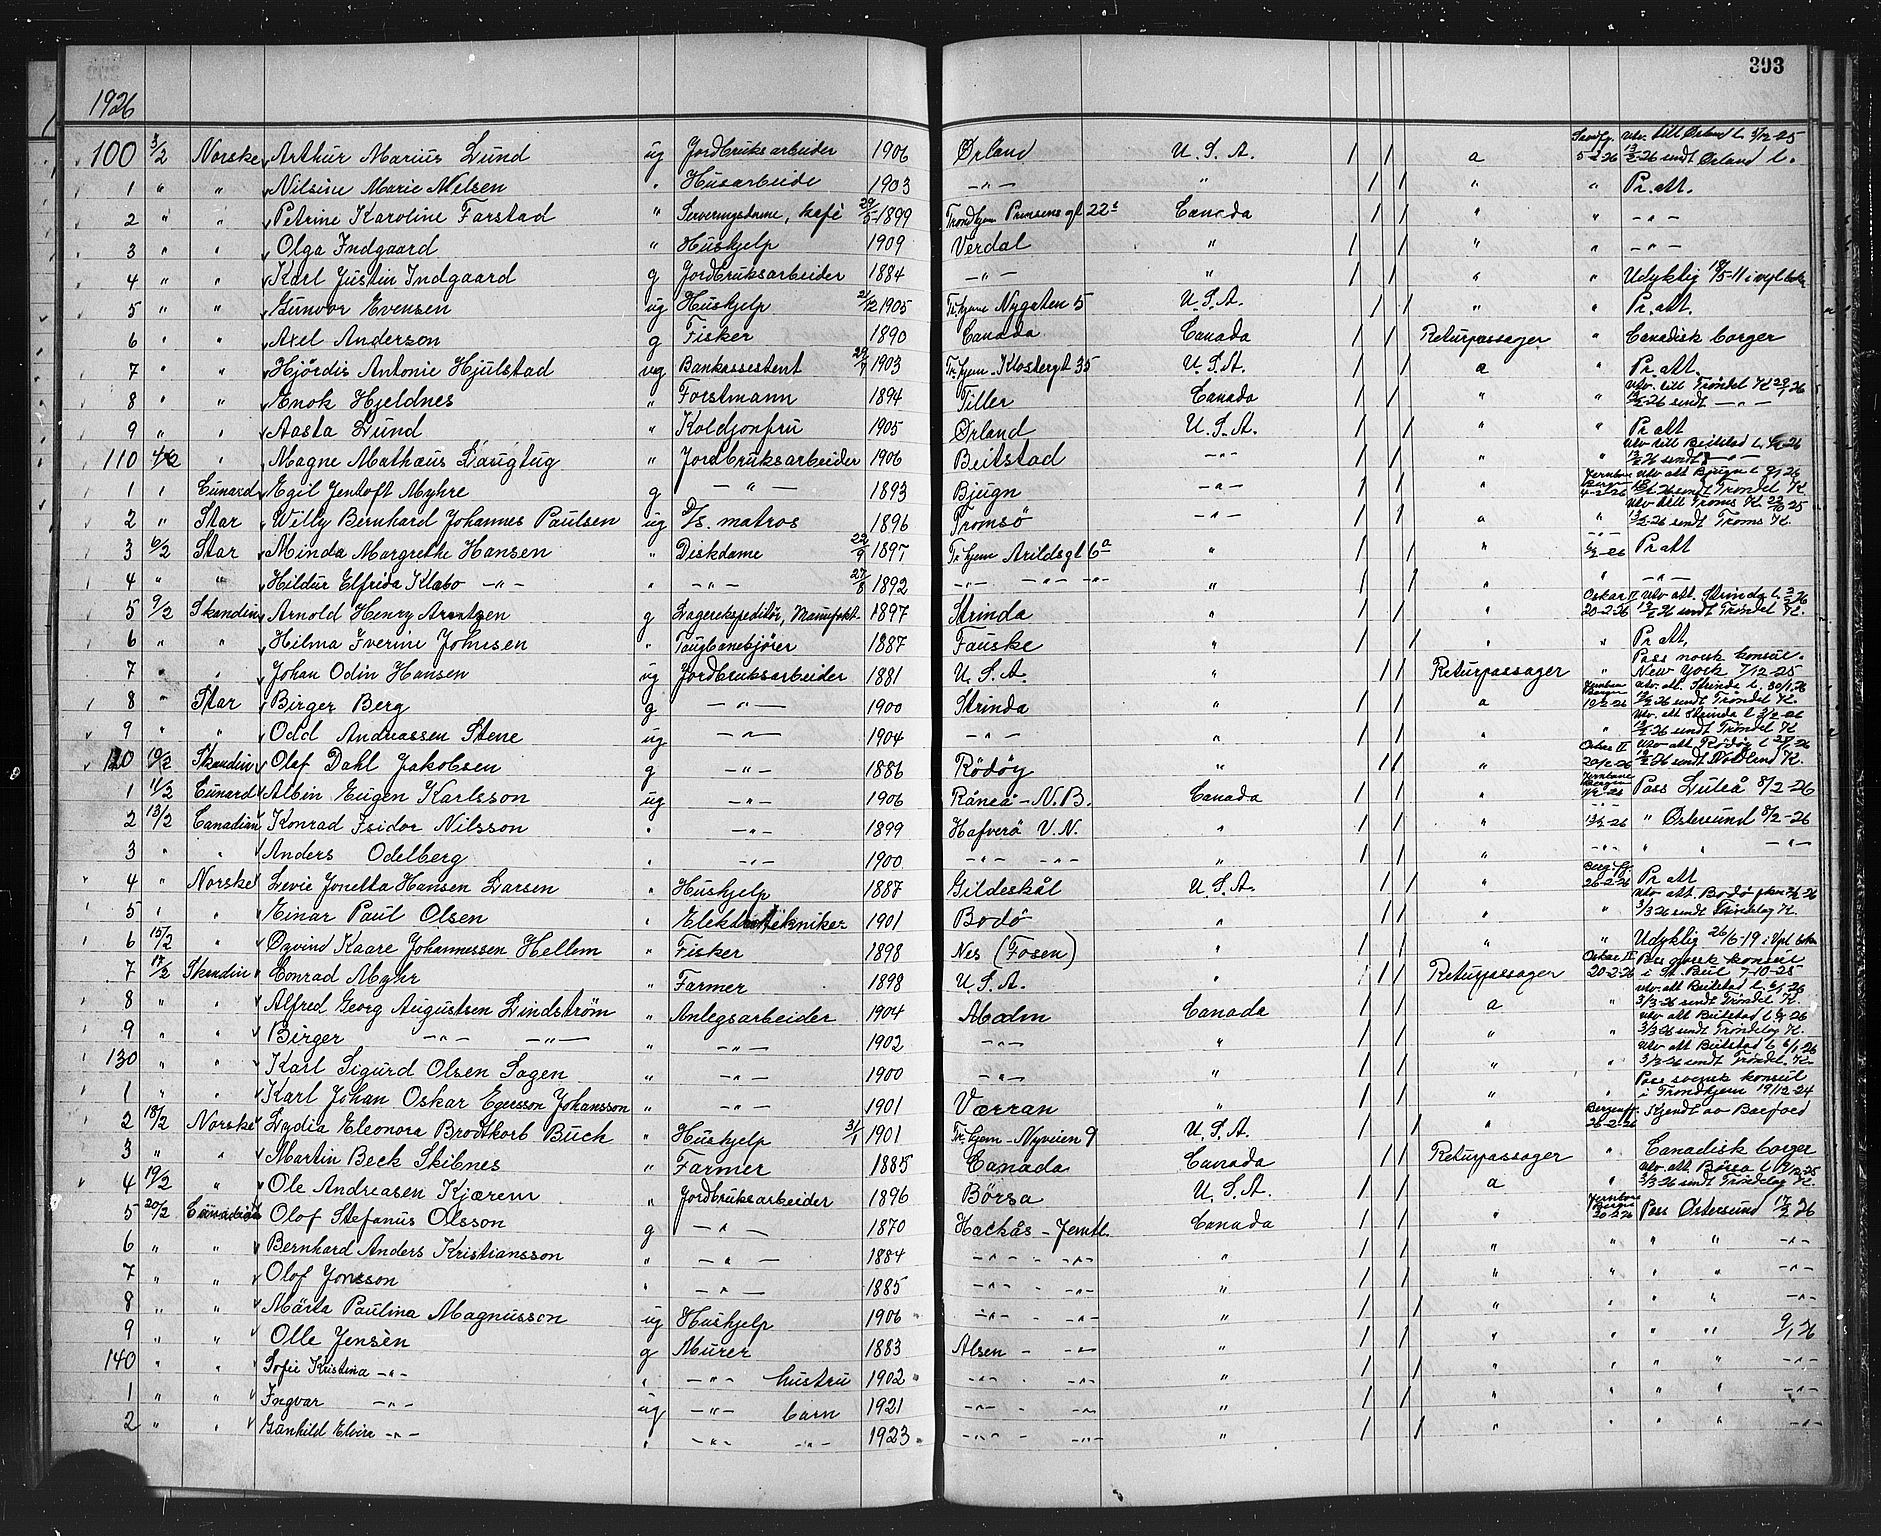 393
1926
100 3/2 Norske Arthur Marius Lund ug Jordbruksarbeider 1906 Ørland U.S.A. / / a 5-2-26 Utv. till Ørland L. 3/12-25 13/2-26 sendt Ørland L.
1 " " Nilsine Marie Nielsen " Husarbeide 1903 -"- " / / " " Pr. att.
2 " " Petrine Karoline Farstad " Serveringsdame, kafé 29/5-1899 Trondhjem Prinsens gt 22 Canada / / " " -"-
3 " " Olga Indgaard " Hushjelp 1909 Verdal " / / " " -"-
4 " " Karl Justin Indgaard g Jordbruksarbeider 1884 -"- " / / " " Udyktig
5 " " Gunvor Evensen ug Hushjelp 21/12 1905 Tr.hjem Nygaten 5 U.S.A. / / " " Pr. att.
6 " " Axel Anderson g Fisker 1890 Canada Canada / / Returpassager " Canadisk borger
7 " " Hjördis Antonie Hjulstad ug Bankassistent 1903 Tr.hjem Klostergt 35 U.S.A. / / a " Pr. att.
8 " " Enok Hjeldnes " Forstmann 1894 Tiller Canada / / " " Utv. till Tröndel. K. 13/2-26 sendt -"-
9 " " Aasta Lund " Koldjomfru 1905 Ørland U.S.A. / / " " Pr att
110 4/2 " Magne Mathæus Daugtug " Jordbruksarbeider 1906 Beitstad -"- / / " " Utv till Beitstad L. 13/2-26 sendt -"-
1 " Cunard Egil Jentoft Myhre g -"- 1893 Bjugn -"- / / " Jernbane Bergen 4-2-26 Utv att Bjugn L sendt Tröndel K.
2 " Star Willy Bernhard Johannes Paulsen ug D/s. matros 1896 Tromsö -"- / / a " Utv att Troms K. 13/2-26 sendt Troms K.
3 6/2 Star Minda Margrethe Hansen " Diskdame 22/9 1897 Tr.hjem Arildsgt 6a " / / " Pr att
4 " " Hildur Elfrida Klabo -"- " -"- 27/8 1892 -"- -"- -"- " / / " " -"-
5 9/2 Skandin Arnold Henry Arentzen g Lagerekspeditör, Manufakt. 1897 Strinda " / / " Oskar II 20-2-26 Utv att. Strinda L 13/2-26 sendt Tröndel K.
6 " " Hilma Iverine Johnsen " Taugbanekjörer 1887 Fauske " / / " Pr. att.
7 " " Johan Odin Hansen ug Jordbruksarbeider 1881 U.S.A. " / / Returpassager " Pass norsk konsul New York 7/12-25
8 " Star Birger Berg g -"- 1900 Strinda " / / a Jernbane Bergen Utv. att. Strinda L. 30/1 26 sendt Tröndel K.
9 " " Odd Andreassen Stene ug -"- 1904 -"- " / / " Utv. att Strinda L 13/2-26 sendt Tröndel K
120 10/2 Skandin Olaf Dahl Jakobsen g -"- 1886 Rödöy " / / " Oskar II 20/2-26 Utv att Rödöy L sendt Nordland K.
1 11/2 Cunard Albin Eugen Karlsson ug -"- 1906 Råneå - N.B. Canada / / " Jernbane Bergen Pass Luleå 8/2-26
2 13/2 Canadian Konrad Isidor Nilsson " -"- 1899 Hafverö V.N. " / / " " Östersund 8/2-26
3 " " Anders Odelberg " -"- 1900 -"- -"- " / / " -"- " " -"-
4 " Norske Levie Jonetta Hansen Larsen " Hushjelp 1887 Gildeskål U.S.A. / / " 26-2-26 Pr. att
5 " " Einar Paul Olsen " Elektrotekniker 1901 Bodö " / / " " Utv att. Bodö 3/3 26 sendt Tröndelag K.
6 15/2 " Øyvind Kaare Johannessen Hellem " Fisker 1898 Nes (Fosen) " / / " " Udyktig 26/6-19
7 17/2 Skandin Conrad Myhr " Farmer 1898 U.S.A. " / / Returpassager Oskar II 20-2-26 Pass norsk konsul i St. Paul 7-10-25
8 " " Alfred Georg Augustsen Lindström " Anlegsarbeider 1904 Malm Canada / / a " Utv. att Beitstad L. 6/1 26 3/3-26 sendt Tröndel K.
9 " " Birger -"- -"- " -"- 1902 -"- " / / " " Utv att Beitstad L 3/3 26 sendt Tröndelag K.
130 " " Karl Sigurd Olsen Sagen " -"- 1900 -"- " / / " " Utv att Beitstad L 6/1 26 3/3-26 sendt Tröndel. K.
1 " " Karl Johan Oskar Egersson Johansson " -"- 1901 Værran " / / " " Pass svensk konsul i Trondhjem 19/12-24
2 18/2 Norske Lydia Eleonora Brodtkorb Buch " Hushjelp 3/1 1901 Tr.hjem - Nyveien 9 U.S.A. / / " 26-2-26 Kjendt av Barfoed
3 " " Martin Beck Skibnes " Farmer 1885 Canada Canada / / Returpassager " Canadisk borger
4 19/2 " Ole Andreasen Kjærem " Jordbruksarbeider 1896 Börsa U.S.A. / / a " Utv. att. Börsa L 3/3-26 sendt Tröndelag K.
5 20/2 Canadian Olof Stefanus Olsson g -"- 1870 Hackås - Jemtl. Canada / / " Jernbane Bergen 20-2-26 Pass Östersund 17/2 26
6 " " Bernhard Anders Kristiansson " -"- 1884 -"- -"- " / / " " " " -"-
7 " " Olof Jonsson " -"- 1885 -"- -"- " / / " " " " -"-
8 " " Märta Paulina Magnusson ug Hushjelp 1906 -"- -"- " / / " " " " -"-
9 " " Olle Jensèn g Murer 1883 Alsen - -"- " / / " " " " 9/1 26
140 " " Sofie Kristina -"- " -"- hustru 1902 -"- -"- " / / " " " " -"-
1 " " Ingvar -"- ug -"- barn 1921 -"- -"- " / / " " " " -"-
2 " " Gunhild Elvira -"- " -"- -"- 1923 -"- -"- " / / " " " " -"-